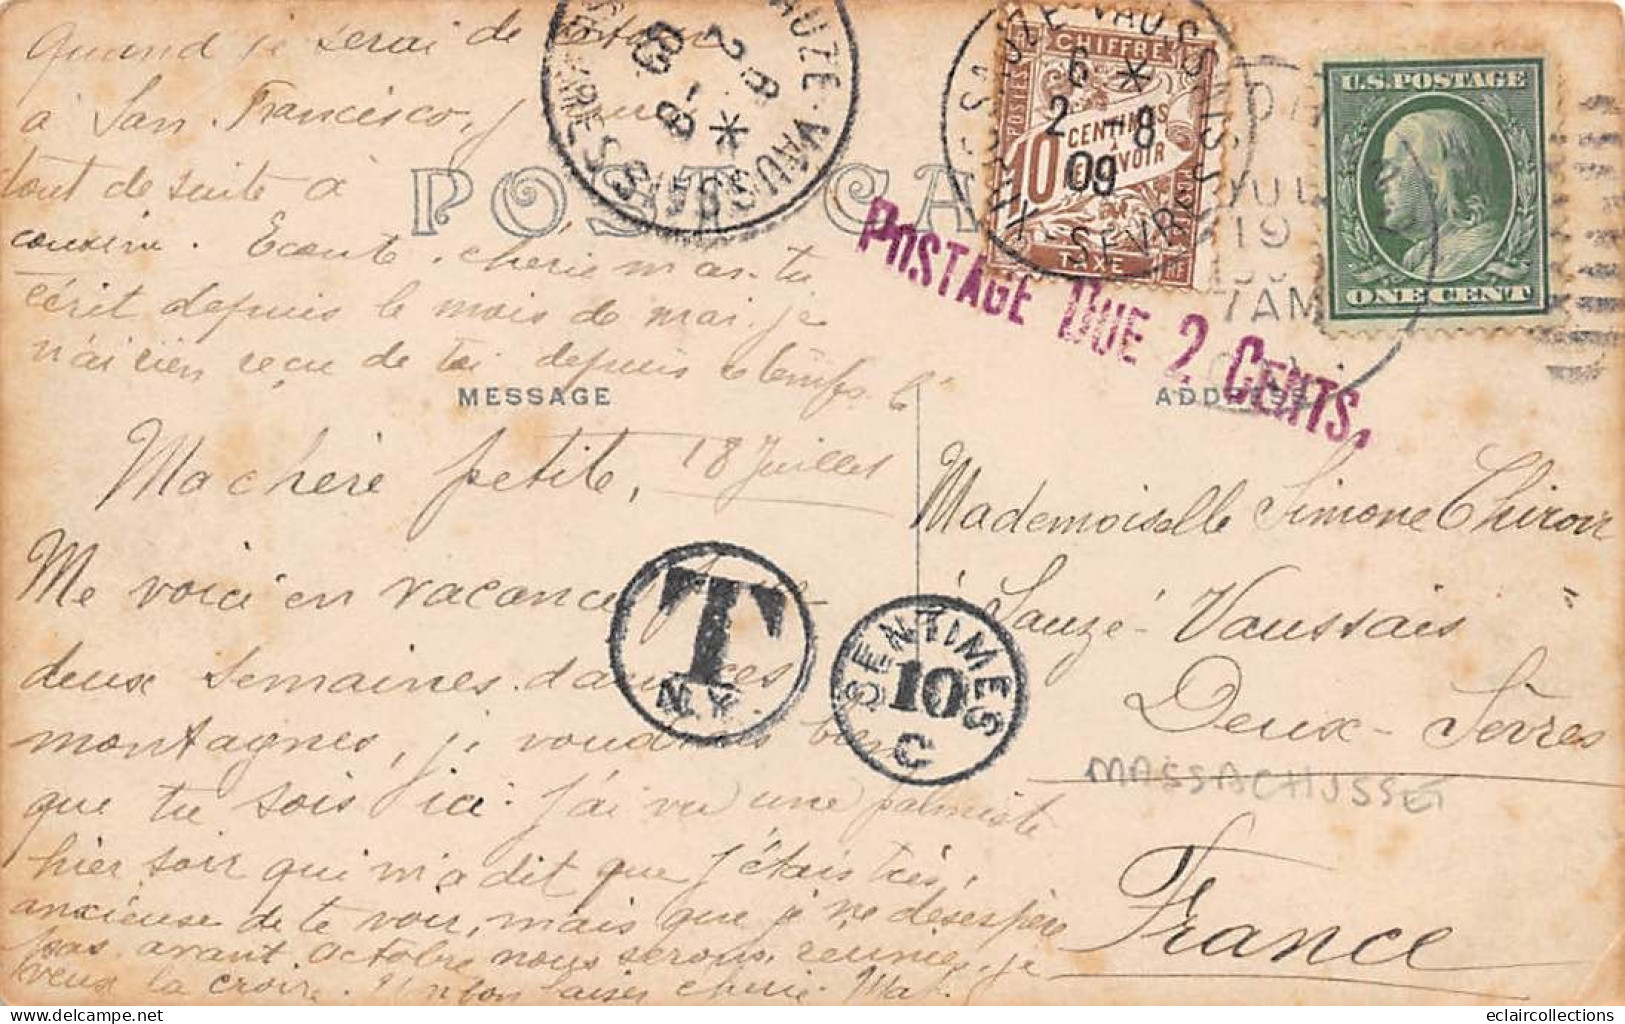 Quand je serai de retour
à San Francisco, j
tout de suite à
cousine. Ecoute chérie mas. tu
écrit depuis le mois de mai. je
n'ai rien reçu de toi depuis
POST CA
MESSAGE
ADDRESS
SAUZE-VAUSSAIS
DEUX SEVRES
6 *
2 -8
09
CHIFFRE
POSTES
10 CENTIMES A PERCEVOIR
TAXE
RF
U.S. POSTAGE
ONE CENT
JUL
19
7 AM
POSTAGE DUE 2 CENTS.
Ma chère petite, 18 Juillet
Me voici en vacances
deux semaines dans ces
montagnes, je voudrais bien
que tu sois ici. J'ai vu une palmiste
hier soir qui m'a dit que j'étais très
anxieuse de te voir, mais que je ne désespère
pas, avant octobre nous serons réunies, je
veux la croire. Un bon baiser chérie. Mat.
T
N.Y.
CENTIMES
10
C
Mademoiselle Simone Chiron
à Sauzé-Vaussais
Deux-Sèvres
MASSACHUSSET
France
eclaircollections
www.delcampe.net